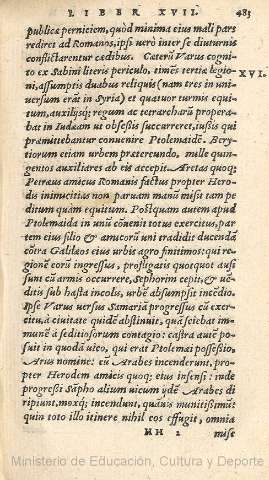 LIBER XVII. 483
publicæ perniciem, quòd minima eius mali pars
rediret ad Romanos, ipsi uerò inter se diuturnis
conflictarentur cædibus. Cæterũ Varus cognito
ex Sabini literis periculo, timẽs tertiæ legio- XVI.
ni, assumptis duabus reliquis (nam tres in uni-
uersum erãt in Syria) et quatuor turmis equi-
tum, auxilijsq; regum ac tetrarcharũ propera-
bat in Iudæam ut obsessis succurreret, iussis qui
præmittebantur conuenire Ptolemaidẽ. Bery-
tiorum etiam urbem prætereundo, mille quin-
gentos auxiliares ab eis accepit. Aretas quoq;
Petræus amicus Romanis factus propter Hero-
dis inimicitias non paruam manũ misit tam pe
ditum quàm equitum. Postquam autem apud
Ptolemaida in unũ cõuenit totus exercitus, par
tem eius filio & amicorũ uni tradidit ducendã
cõtra Galilæos eius urbis agro finitimos: qui re
gionẽ eorũ ingressus, profligatis quotquot ausi
sunt cũ armis occurrere, Sephorim cepit, & uẽ-
ditis sub hasta incolis, urbẽ absumpsit incẽdio.
Ipse Varus uersus Samariã progressus cũ exer-
citu, à ciuitate quidẽ abstinuit, quã sciebat im-
munẽ à seditiosorum contagio: castra autẽ po-
suit in quodã uico, qui erat Ptolemæi possessio,
Arus nomine: eũ Arabes incenderunt, prop-
ter Herodem amicis quoq; eius infensi: inde
progressi Sápho alium uicum ydẽ Arabes di
ripiunt, moxq; incendunt, quãuis munitissimũ:
quin toto illo itinere nihil eos effugit, omnia
HH 2 mise
Ministerio de Educación, Cultura y Deporte